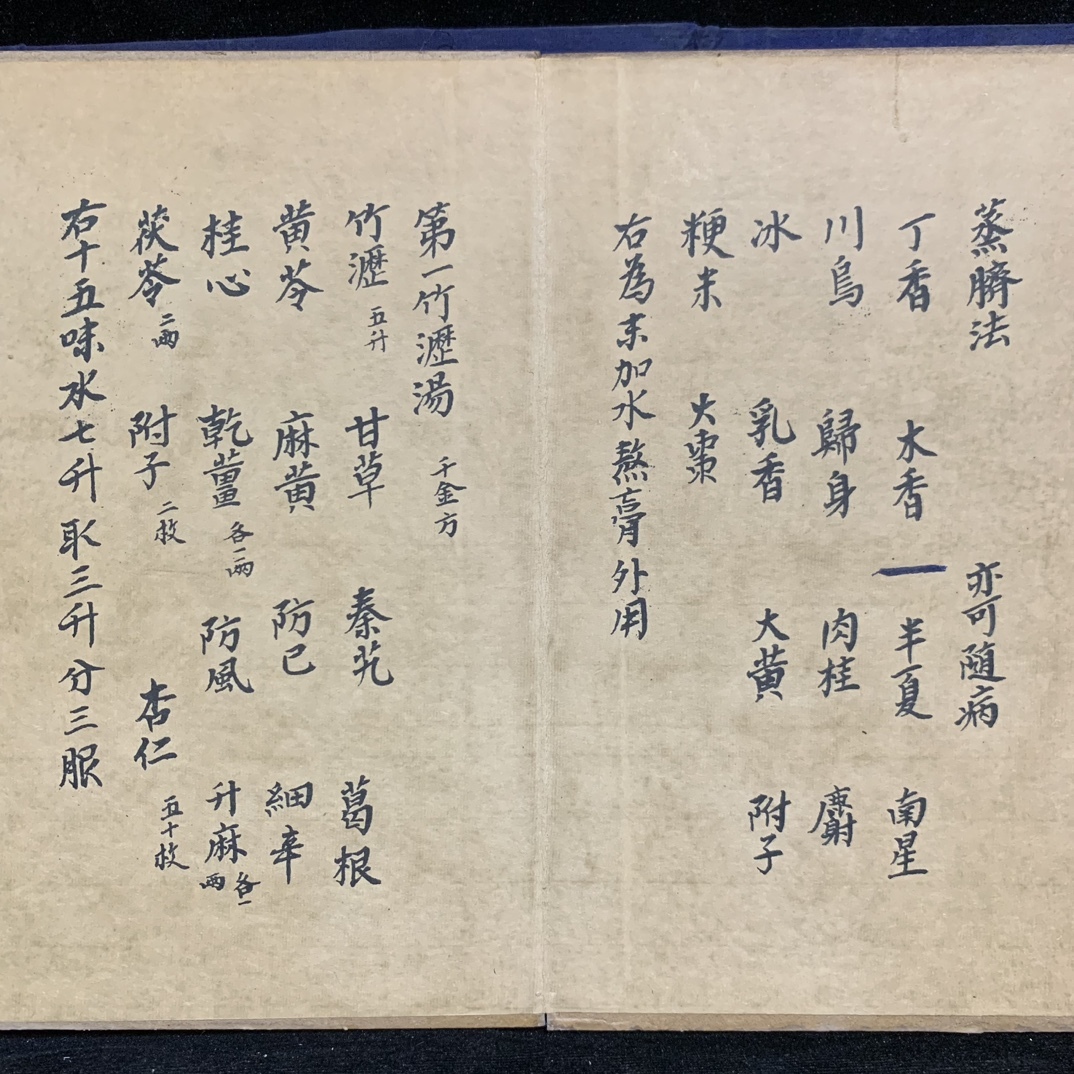 蒸臍法 亦可随病
丁香 木香 半夏 南星
川烏 歸身 肉桂 麝
冰 乳香 大黄 附子
粳米 大棗
右為末加水熬膏外用
第一竹瀝湯 千金方
竹瀝 五升 甘草 秦艽 葛根
黄芩 麻黄 防己 細辛
桂心 乾薑 各二兩 防風 升麻 各一兩
茯苓 二兩 附子 二枚 杏仁 五十枚
右十五味水七升取三升分三服